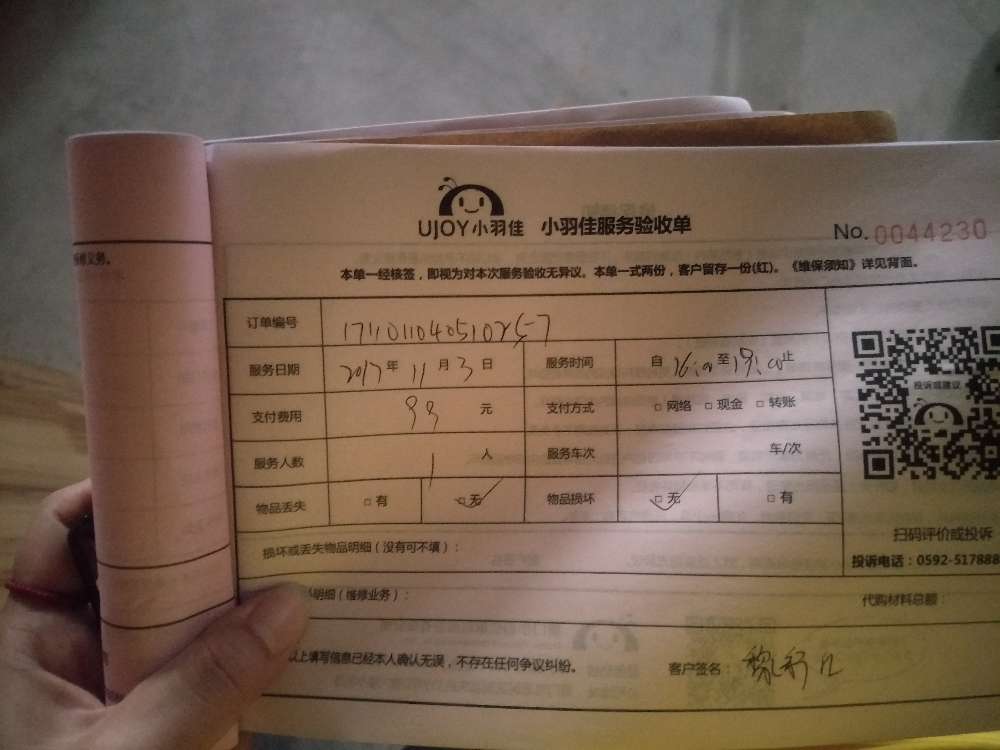 UJOY小羽佳 小羽佳服务验收单 No.0044230
维修义务。
本单一经核签，即视为对本次服务验收无异议。本单一式两份，客户留存一份(红)。《维保须知》详见背面。
订单编号 1711011040510257
服务日期 2017年11月3日 服务时间 自16:00至19:00止
投诉或建议
支付费用 99元 支付方式 □网络 □现金 □转账
服务人数 1人 服务车次 车/次
物品丢失 □有 □无 物品损坏 □无 □有
扫码评价或投诉
损坏或丢失物品明细（没有可不填）：
投诉电话：0592-517888
明细（维修业务）： 代购材料总额：
以上填写信息已经本人确认无误，不存在任何争议纠纷。 客户签名：